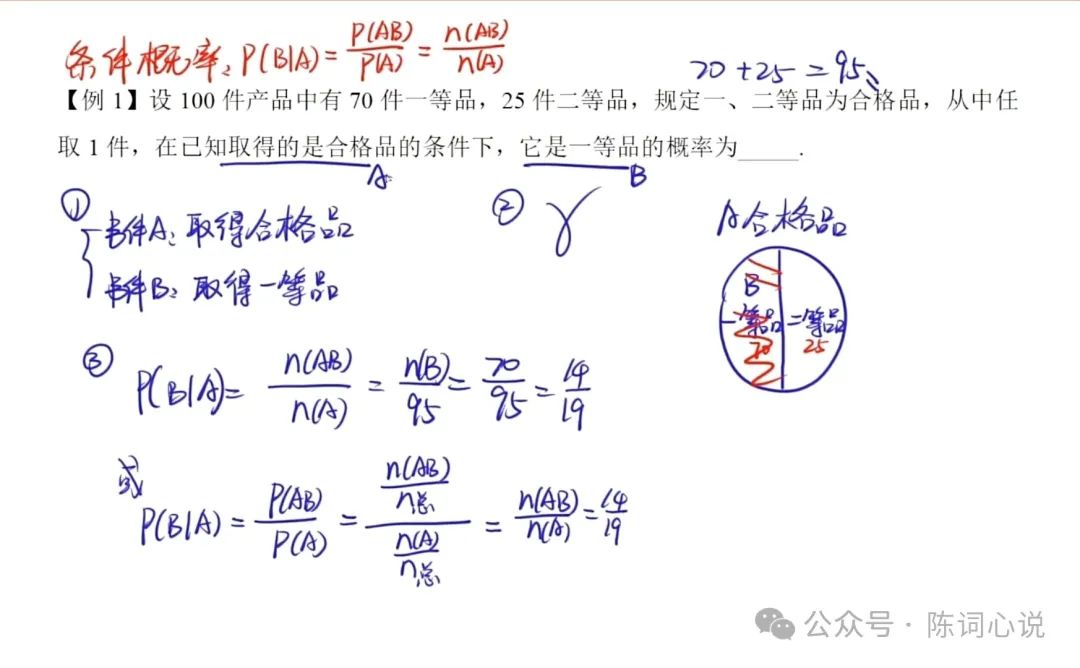 条件概率：P(B|A)=P(AB)/P(A)=n(AB)/n(A)
70+25=95
【例 1】设 100 件产品中有 70 件一等品，25 件二等品，规定一、二等品为合格品，从中任
取 1 件，在已知取得的是合格品的条件下，它是一等品的概率为_____.
A
B
① 事件A：取得合格品
事件B：取得一等品
②
A合格品
B
一等品 二等品
70 25
③ P(B|A)=n(AB)/n(A)=n(B)/95=70/95=14/19
或
P(B|A)=P(AB)/P(A)=(n(AB)/n总)/(n(A)/n总)=n(AB)/n(A)=14/19
公众号 · 陈词心说